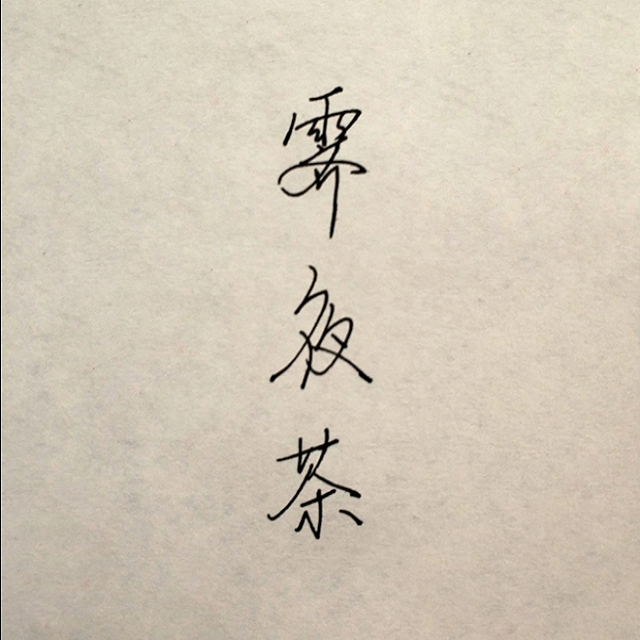 霁夜茶